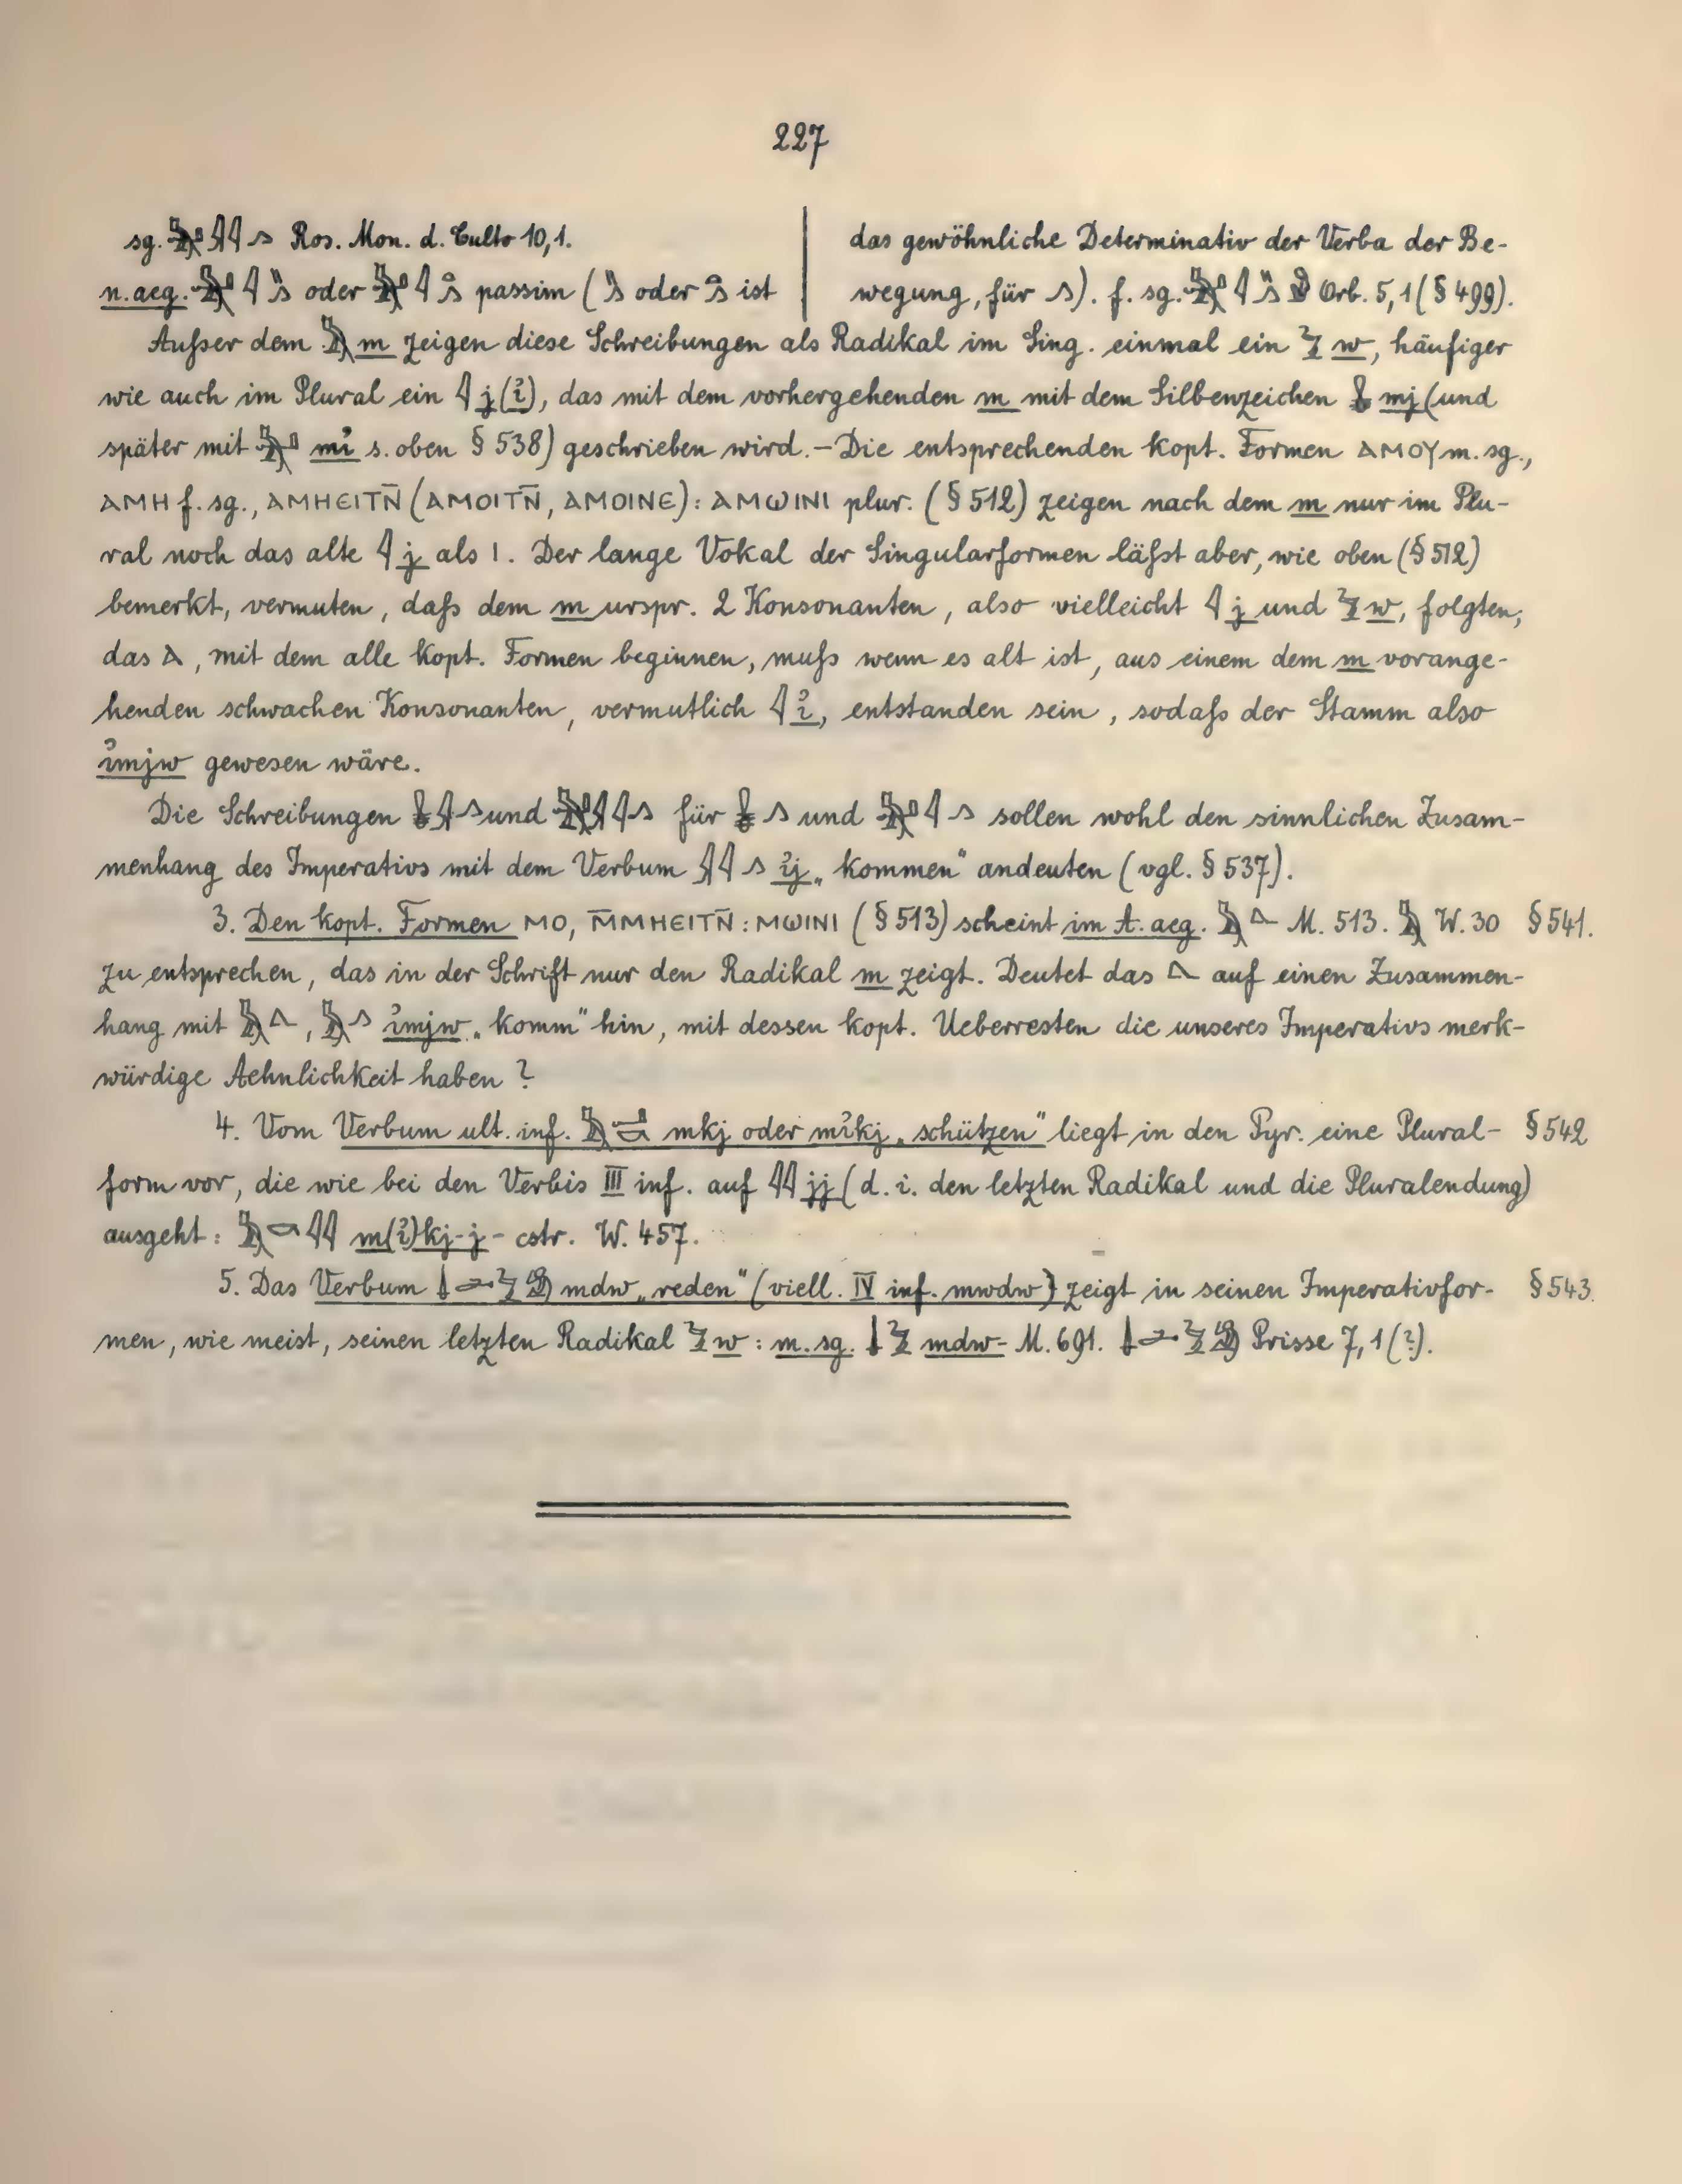 227
sg. 𓅓𓂝𓇋𓇋𓂻 Ros. Mon. d. Culto 10,1.
n.aeg. 𓇋 oder 𓇋 passim ( oder ist
das gewöhnliche Determinativ der Verba der Be-
wegung, für 𓂻). f. sg. 𓇋 Orb. 5,1 (§ 499).
Außer dem 𓅓 m zeigen diese Schreibungen als Radikal im Sing. einmal ein 𓅱 w, häufiger
wie auch im Plural ein 𓇋 j (ỉ), das mit dem vorhergehenden m mit dem Silbenzeichen 𓏇 mj (und
später mit mỉ s. oben § 538) geschrieben wird. – Die entsprechenden kopt. Formen ⲀⲘⲞⲨ m. sg.,
ⲀⲘⲎ f. sg., ⲀⲘⲎⲈⲒⲦⲚ̄ (ⲀⲘⲞⲒⲦⲚ̄, ⲀⲘⲞⲒⲚⲈ): ⲀⲘⲰⲒⲚⲒ plur. (§ 512) zeigen nach dem m nur im Plu-
ral noch das alte 𓇋 j als Ⲓ. Der lange Vokal der Singularformen läßt aber, wie oben (§ 512)
bemerkt, vermuten, daß dem m urspr. 2 Konsonanten, also vielleicht 𓇋 j und 𓅱 w, folgten;
das Ⲁ, mit dem alle kopt. Formen beginnen, muß wenn es alt ist, aus einem dem m vorange-
henden schwachen Konsonanten, vermutlich 𓇋 ỉ, entstanden sein, sodaß der Stamm also
ỉmjw gewesen wäre.
Die Schreibungen 𓏇𓇍𓂻 und 𓇍𓇋𓂻 für 𓏇𓂻 und 𓇋𓂻 sollen wohl den sinnlichen Zusam-
menhang des Imperativs mit dem Verbum 𓇍𓇋𓂻 ỉj „kommen“ andeuten (vgl. § 537).
3. Den kopt. Formen ⲘⲞ, Ⲙ̄ⲘⲎⲈⲒⲦⲚ̄: ⲘⲰⲒⲚⲒ (§ 513) scheint im A. aeg. 𓅓𓏙 M. 513. 𓅓 W. 30 § 541.
zu entsprechen, das in der Schrift nur den Radikal m zeigt. Deutet das auf einen Zusammen-
hang mit 𓅓, 𓅓𓂻 ỉmjw „komm“ hin, mit dessen kopt. Ueberresten die unseres Imperativs merk-
würdige Aehnlichkeit haben?
4. Vom Verbum ult. inf. 𓅓𓂝𓎡 mkj oder mỉkj „schützen“ liegt in den Pyr. eine Plural- § 542
form vor, die wie bei den Verbis III inf. auf 𓇋𓇋 jj (d. i. den letzten Radikal und die Pluralendung)
ausgeht: 𓅓𓎡𓇋𓇋 m(ỉ)kj-j- cstr. W. 457.
5. Das Verbum 𓌃𓂧𓅱𓀁 mdw „reden“ (viell. IV inf. mwdw) zeigt in seinen Imperativfor- § 543.
men, wie meist, seinen letzten Radikal 𓅱 w: m. sg. 𓌃𓅱 mdw- M. 691. 𓌃𓂧𓅱𓀁 Prisse 7,1 (?).